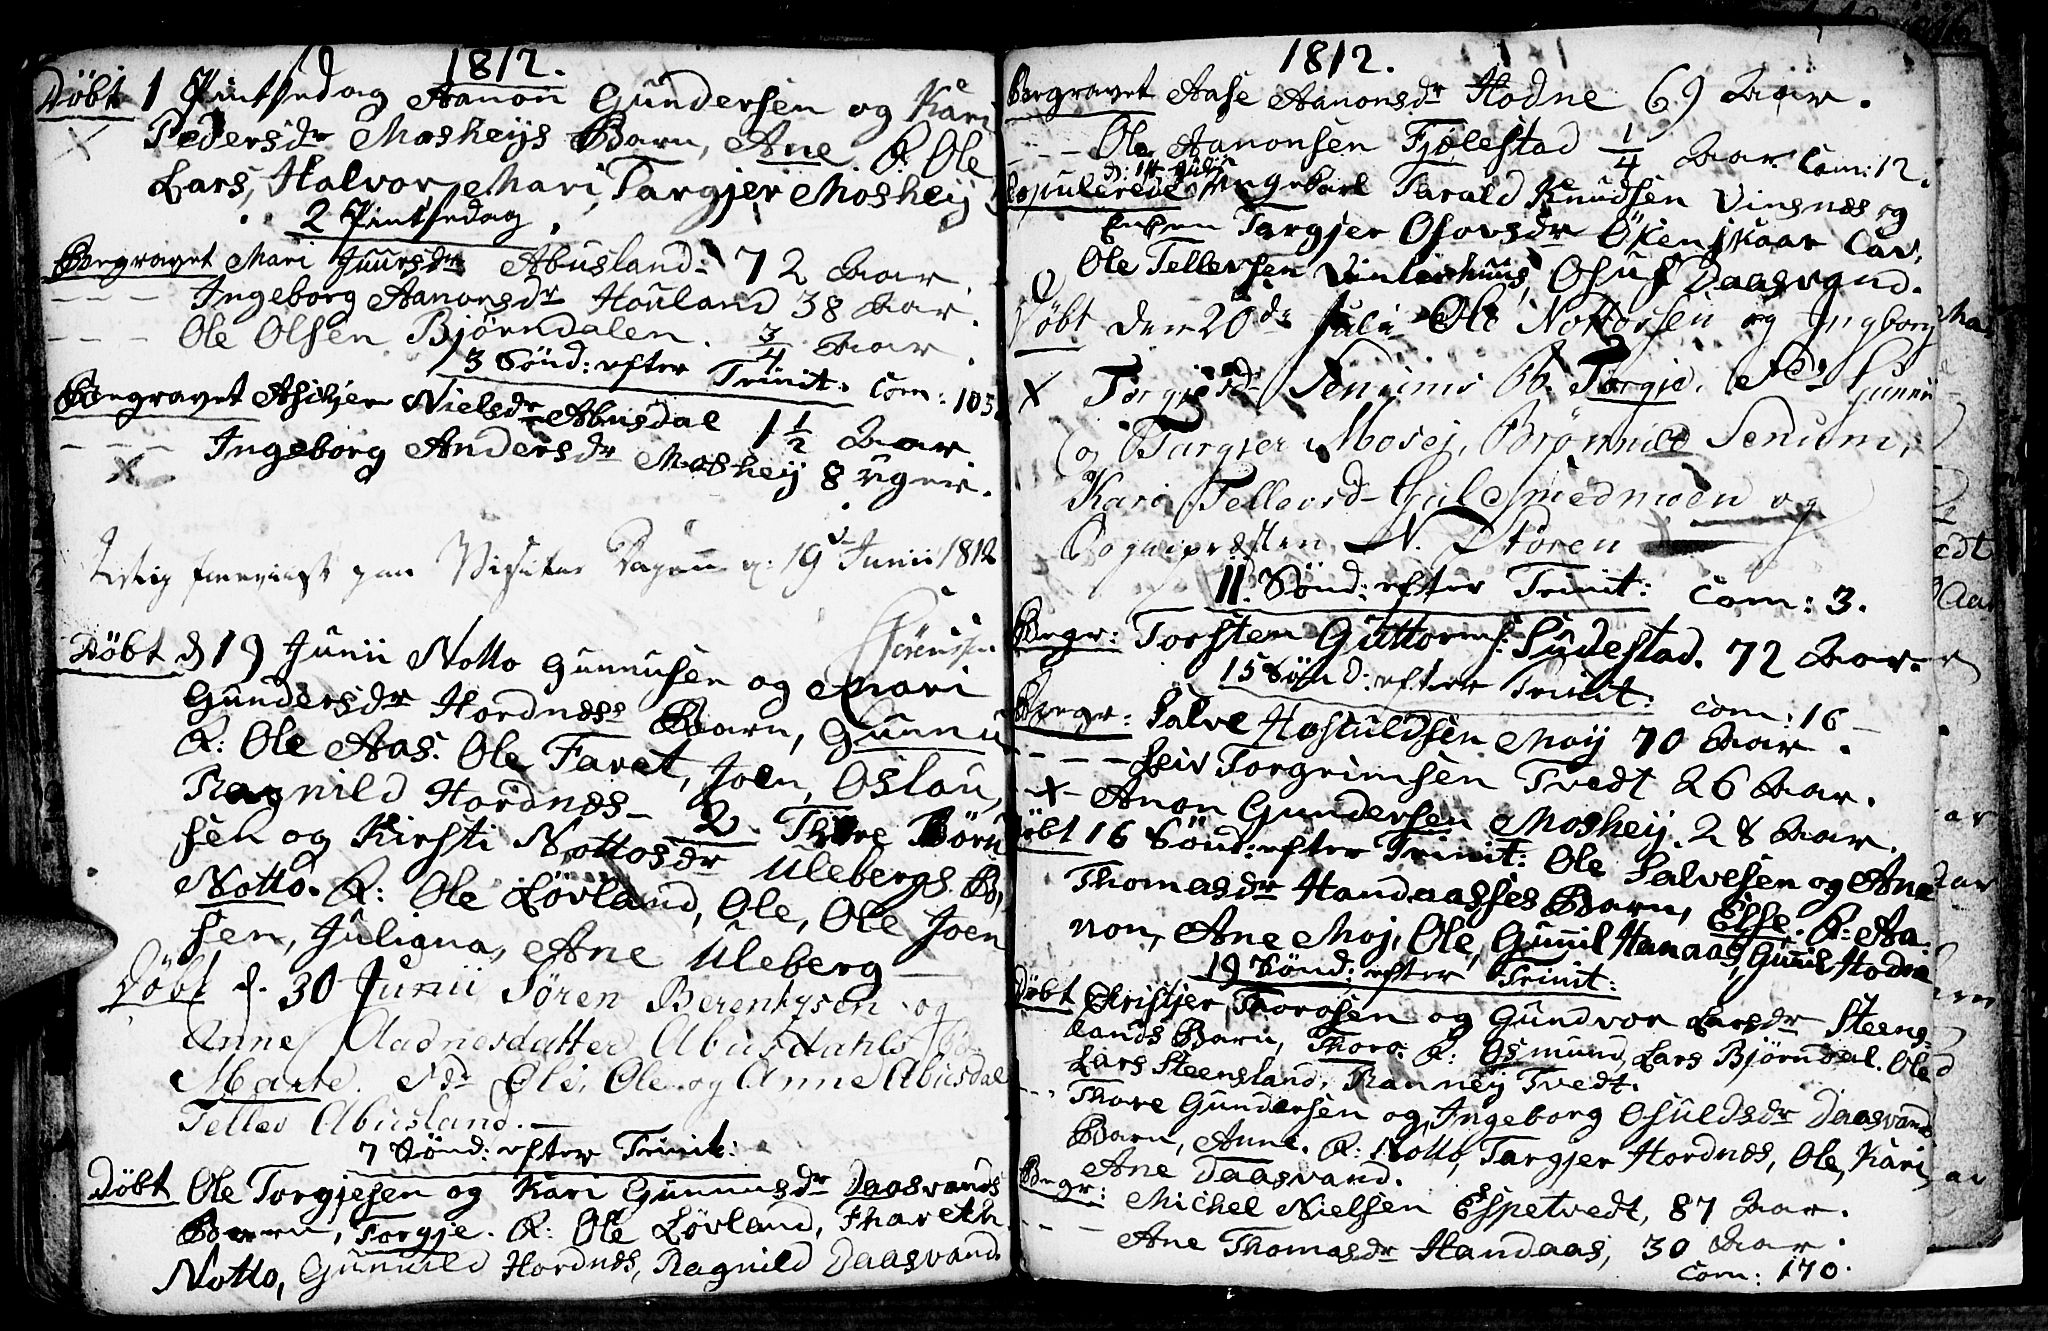 1812.
Döbt 1 Pintsedag Aanon Gundersen og Kari
Pedersdr Mosheijs Barn, Ane F. Ole
Lars, Halvor, Mari, Targjer Mosheij
2 Pintsedag
Begravet Mari Juursdr Abusland: 72 Aar.
- - - Ingeborg Aanonsdr Houland 38 Aar.
- - - Ole Olsen Bjørndalen. 3/4 Aar.
3 Sönd: efter Trinit: Com: 105.
Begravet Aschjer Nielsdr Abusdal 1 1/2 Aar
- - - Ingeborg Andersdr Mosheij 8 uger.
paa Visitas Dagen d. 19 Junii 1812
Sörensen
Döbt d 19 Junii Notto Gunnusen og Mari
Gundersdr Hordness Barn, Gunnu
F: Ole Aas. Ole Faret, Joen, Oslau,
Ragnild Hordnes - 2. Thore Börn
sen og Kirsti Nottosdr Ulebergs B,
Notto. F: Ole Lövland, Ole, Ole Joen
sen, Juliana, Ane Uleberg -
Döbt d. 30 Junii Søren Berentysen og
Anne Aadnesdatter Abusdahls B.
Marte. Fdr Ole, Ole og Anne Abusdal
Tellev Abusland. -
7 Sönd: efter Trinit:
Döbt Ole Torgjesen og Kari Gunnusdr Daasvands
Barn, Torgje. F: Ole Lövland, Thare Th.
Notto, Gunnild Hordnes, Ragnild Daasvand.
1812.
Begravet Aase Aanonsdr Hodne 69 Aar.
- - - Ole Aanonsen Fjølestad 1/4 Aar Com: 12.
Copulerede Ungekarl Tarald Knudsen Vinsnes og
Enken Targjer Osovsdr Ökenskaar Cav.
Ole Tellevsen Vinlerhuus, Osuf Daasvand.
Döbt den 20de Juli Ole Nottosen og Ingborg
Torgjesdr Senums B. Torgje. Fdr Gunni
og Targjer Mosej, Brønnild Senum,
Kari Tellevsd- Guldsmedmoen og
Sognepræsten N. Støren
11. Sönd: efter Trinit: Com: 3.
Begr: Torsten Guttorms. Sudestad. 72 Aar.
15 Sönd: efter Trinit: Com: 16 -
Begr: Salve Hosuldsen Moij 70 Aar.
- - - Leiv Torgrimsen Tvedt 26 Aar.
Anon Gundersen Mosheij. 28 Aar.
Döbt 16 Sönd: efter Trinit: Ole Salvesen og Ane
Thomasdr Handaasses Barn, Else. F: Aa
non, Ane Moj, Ole, Gunnil Hanaas, Gunnil Hodne
19 Sönd: efter Trinit:
Döbt Christjer Thorosen og Gundvor Larsdr Steens-
lands Barn, Thoro. F: Osmund, Lars Bjørndal. Ole
Lars Steensland, Ranneij Tvedt.
- - - Thore Gundersen og Ingeborg Osuldsdr Daasvand
Barn, Anne. F: Notto, Targjer Hordnes, Ole, Kari,
Ane Daasvand.
Begr: Michel Nielsen Espetvedt, 87 Aar.
- - - Ane Thomasdr Handaas, 30 Aar.
Com: 170.